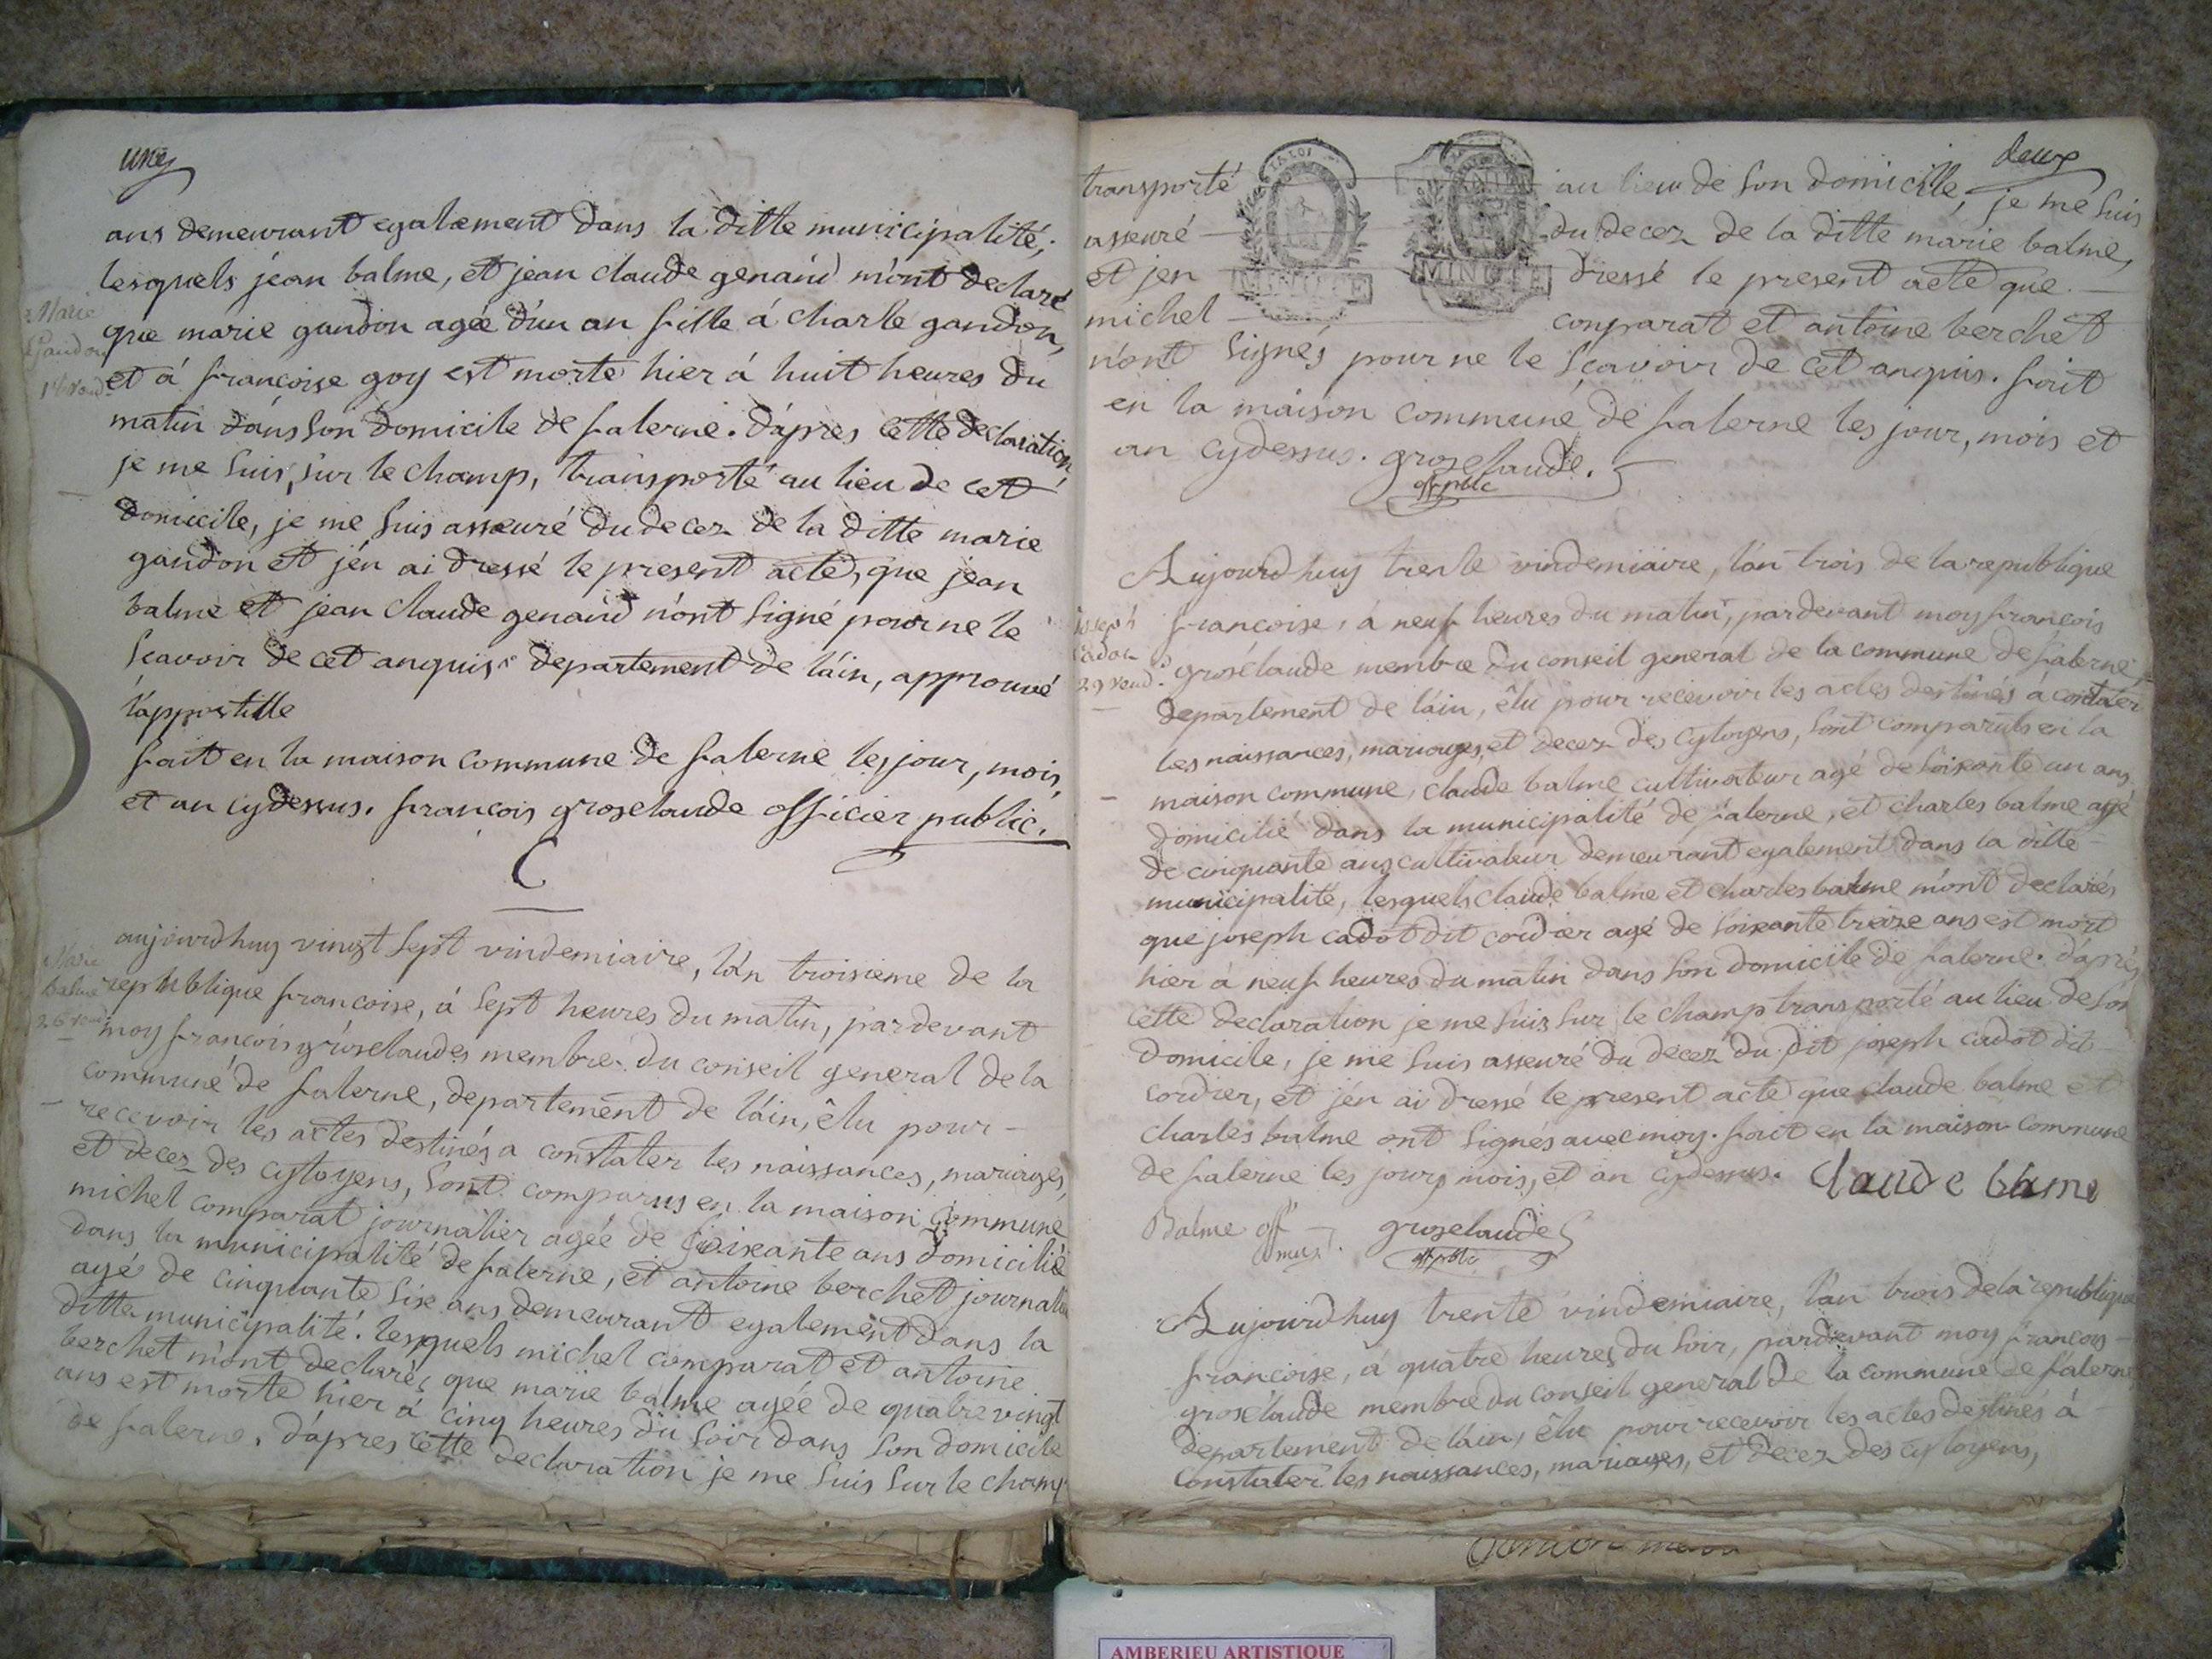 une
ans demeurant egalement dans la ditte municipalité;
lesquels jean balme, et jean claude genaud m'ont declaré
Marie
gandon
que marie gandon agée d'un an fille á charle gandon,
et á francoise goy est morte hier á huit heures du
matin dans son domicile de salerne. d'apres cette declaration,
je me suis, sur le champ, transporté au lieu de cet
domicile, je me suis asseuré du decez de la ditte marie
gandon et j'en ai dressé le present acte, que jean
balme et jean claude genaud n'ont signé pour ne le
scavoir de cet anquis departement de l'ain, approuvé
l'appostille
fait en la maison commune de salerne les jour, mois,
et an cydessus. francois groselaude officier public.
aujourdhuy vingt sept vindemiaire, l'an troisieme de la
Marie
balme
26 vend
republique francoise, á sept heures du matin, pardevant
moy francois groselaudes membre du conseil general de la
commune de salerne, departement de l'ain, êlu pour -
recevoir les actes destinés a constater les naissances, mariages,
et decez des cytoyens, sont comparus en la maison commune
michel comparat journalier agée de soixante ans domicilié
dans la municipalité de salerne, et antoine berchet journalier
agé de cinquante six ans demeurant egalement dans la
ditte municipalité. lesquels michel comparat et antoine
berchet m'ont declarés que marie balme agée de quatre vingt
ans est morte hier á cinq heures du soir dans son domicile
de salerne. d'apres cette declaration je me suis sur le champ
deux
transporté au lieu de son domicille, je me suis
asseuré du decez de la ditte marie balme,
et j'en dressé le present acte que
michel comparat et antoine berchet
n'ont signés pour ne le sçavoir de cet anquis. fait
en la maison commune de salerne les jour, mois et
an cydessus. groselaude.
off public
MINUTE
MINUTE
Aujourdhuy trente vindemiaire, l'an trois de la republique
joseph
cadot
29 vend.
francoise, á neuf heures du matin, pardevant moy francois
groselaude membre du conseil general de la commune de salerne,
departement de l'ain, êlu pour recevoir les actes destinés á constater
les naissances, mariages, et decez des cytoyens, sont comparuts en la
maison commune, claude balme cultivateur agé de soixante un ans
domicilié dans la municipalité de salerne, et charles balme agé
de cinquante ans cultivateur demeurant egalement dans la ditte
municipalité, lesquels claude balme et charles balme m'ont declarés
que joseph cadot dit cordier agé de soixante treize ans est mort
hier á neuf heures du matin dans son domicile de salerne. d'aprés
cette declaration je me suis sur le champ transporté au lieu de son
domicile, je me suis asseuré du decez du dit joseph cadot dit
cordier, et j'en ai dressé le present acte que claude balme et
charles balme ont signés avec moy. fait en la maison commune
de salerne les jours mois, et an cydessus. Claude balme
Balme off mun. groselaude
off public
Aujourdhuy trente vindemiaire, l'an trois de la republique
francoise, á quatre heures du soir, pardevant moy francois
groselaude membre du conseil general de la commune de salerne
departement de l'ain, êlu pour recevoir les actes destinés á
constater les naissances, mariages, et decez des cytoyens,
AMBERIEU ARTISTIQUE